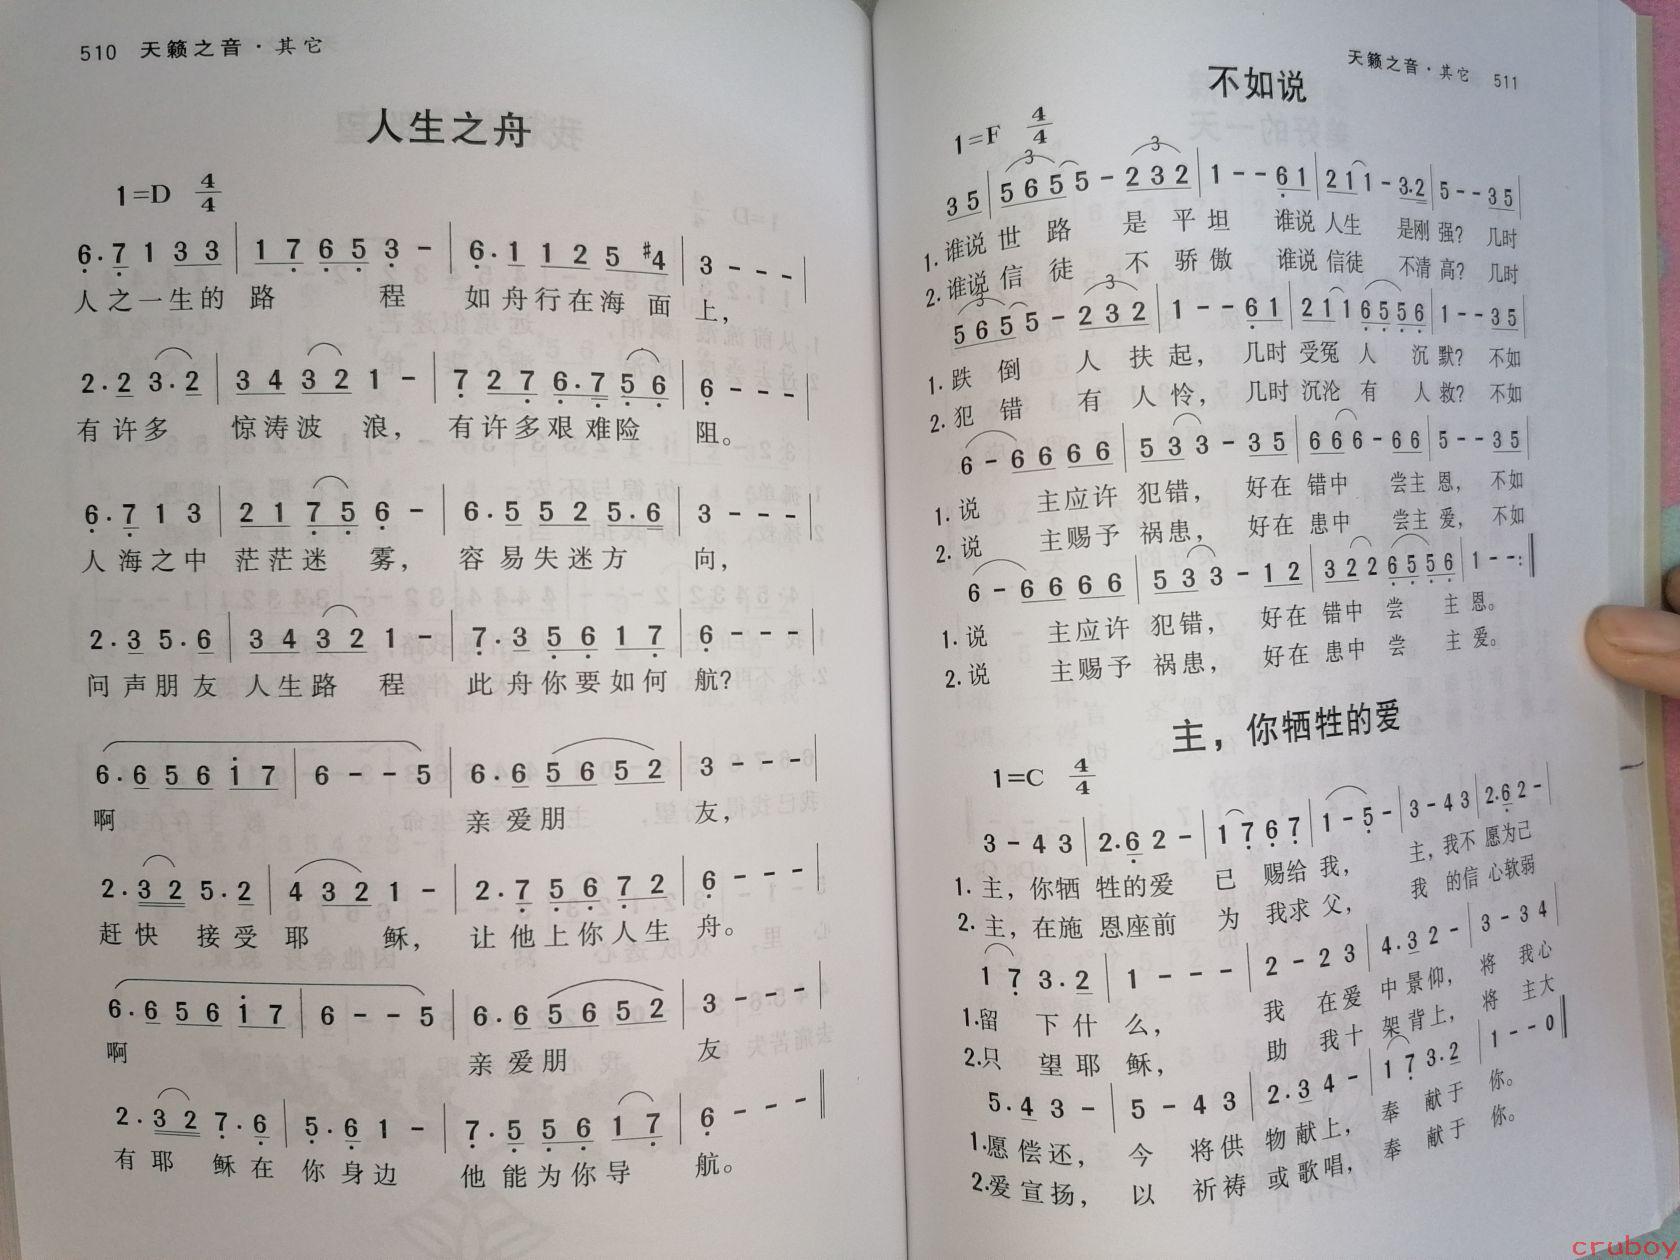 510 天籁之音·其它
人生之舟
1=D 4/4
6.7 1 3 3 | 1 7 6 5 3 - | 6.1 1 2 5 #4 | 3 - - - |
人之一生的 路 程 如舟行在海 面 上，
2.2 3.2 | 3 4 3 2 1 - | 7 2 7 6.7 5 6 | 6 - - - |
有许多 惊涛波 浪， 有许多艰难险 阻。
6.7 1 3 | 2 1 7 5 6 - | 6.5 5 2 5.6 | 3 - - - |
人海之中 茫茫迷 雾， 容易失迷方 向，
2.3 5.6 | 3 4 3 2 1 - | 7.3 5 6 1 7 | 6 - - - |
问声朋友 人生路 程 此舟你要如何 航？
6.6 5 6 i 7 | 6 - - 5 | 6.6 5 6 5 2 | 3 - - - |
啊 亲爱朋 友，
2.3 2 5.2 | 4 3 2 1 - | 2.7 5 6 7 2 | 6 - - - |
赶快 接受耶 稣， 让他上你人生 舟。
6.6 5 6 i 7 | 6 - - 5 | 6.6 5 6 5 2 | 3 - - - |
啊 亲爱朋 友
2.3 2 7.6 | 5.6 1 - | 7.5 5 6 1 7 | 6 - - - ‖
有耶 稣在 你身边 他能为你导 航。
天籁之音·其它 511
不如说
1=F 4/4
3 5 | 5 6 5 5 - 2 3 2 | 1 - - 6 1 | 2 1 1 - 3.2 | 5 - - 3 5 |
1.谁说世 路 是 平坦 谁说人生 是刚强？ 几时
2.谁说信 徒 不 骄傲 谁说信徒 不清高？ 几时
5 6 5 5 - 2 3 2 | 1 - - 6 1 | 2 1 1 6 5 5 6 | 1 - - 3 5 |
1.跌 倒 人 扶起， 几时受冤 人 沉 默？ 不如
2.犯 错 有 人怜， 几时沉沦 有 人救？ 不如
6 - 6 6 6 6 | 5 3 3 - 3 5 | 6 6 6 - 6 6 | 5 - - 3 5 |
1.说 主应许 犯错， 好在 错中 尝主恩， 不如
2.说 主赐予 祸患， 好在 患中 尝主爱， 不如
6 - 6 6 6 6 | 5 3 3 - 1 2 | 3 2 2 6 5 5 6 | 1 - - :‖
1.说 主应许 犯错， 好在 错中 尝 主恩。
2.说 主赐予 祸患， 好在 患中 尝 主爱。
主，你牺牲的爱
1=C 4/4
3 - 4 3 | 2.6 2 - | 1 7 6 7 | 1 - 5 - | 3 - 4 3 | 2.6 2 - |
1.主，你牺 牲的爱 已 赐给我， 主，我不 愿为己
2.主，在施 恩座前 为 我求父， 我 的信 心软弱
1 7 3.2 | 1 - - - | 2 - 2 3 | 4.3 2 - | 3 - 3 4 |
1.留 下什 么， 我 在爱 中景仰， 将 我心
2.只 望耶 稣， 助 我十 架背上， 将 主大
5.4 3 - | 5 - 4 3 | 2.3 4 - | 1 7 3.2 | 1 - - 0 ‖
1.愿偿还， 今 将供 物献上， 奉 献于 你。
2.爱宣扬， 以 祈祷 或歌唱， 奉 献于 你。
cruboy